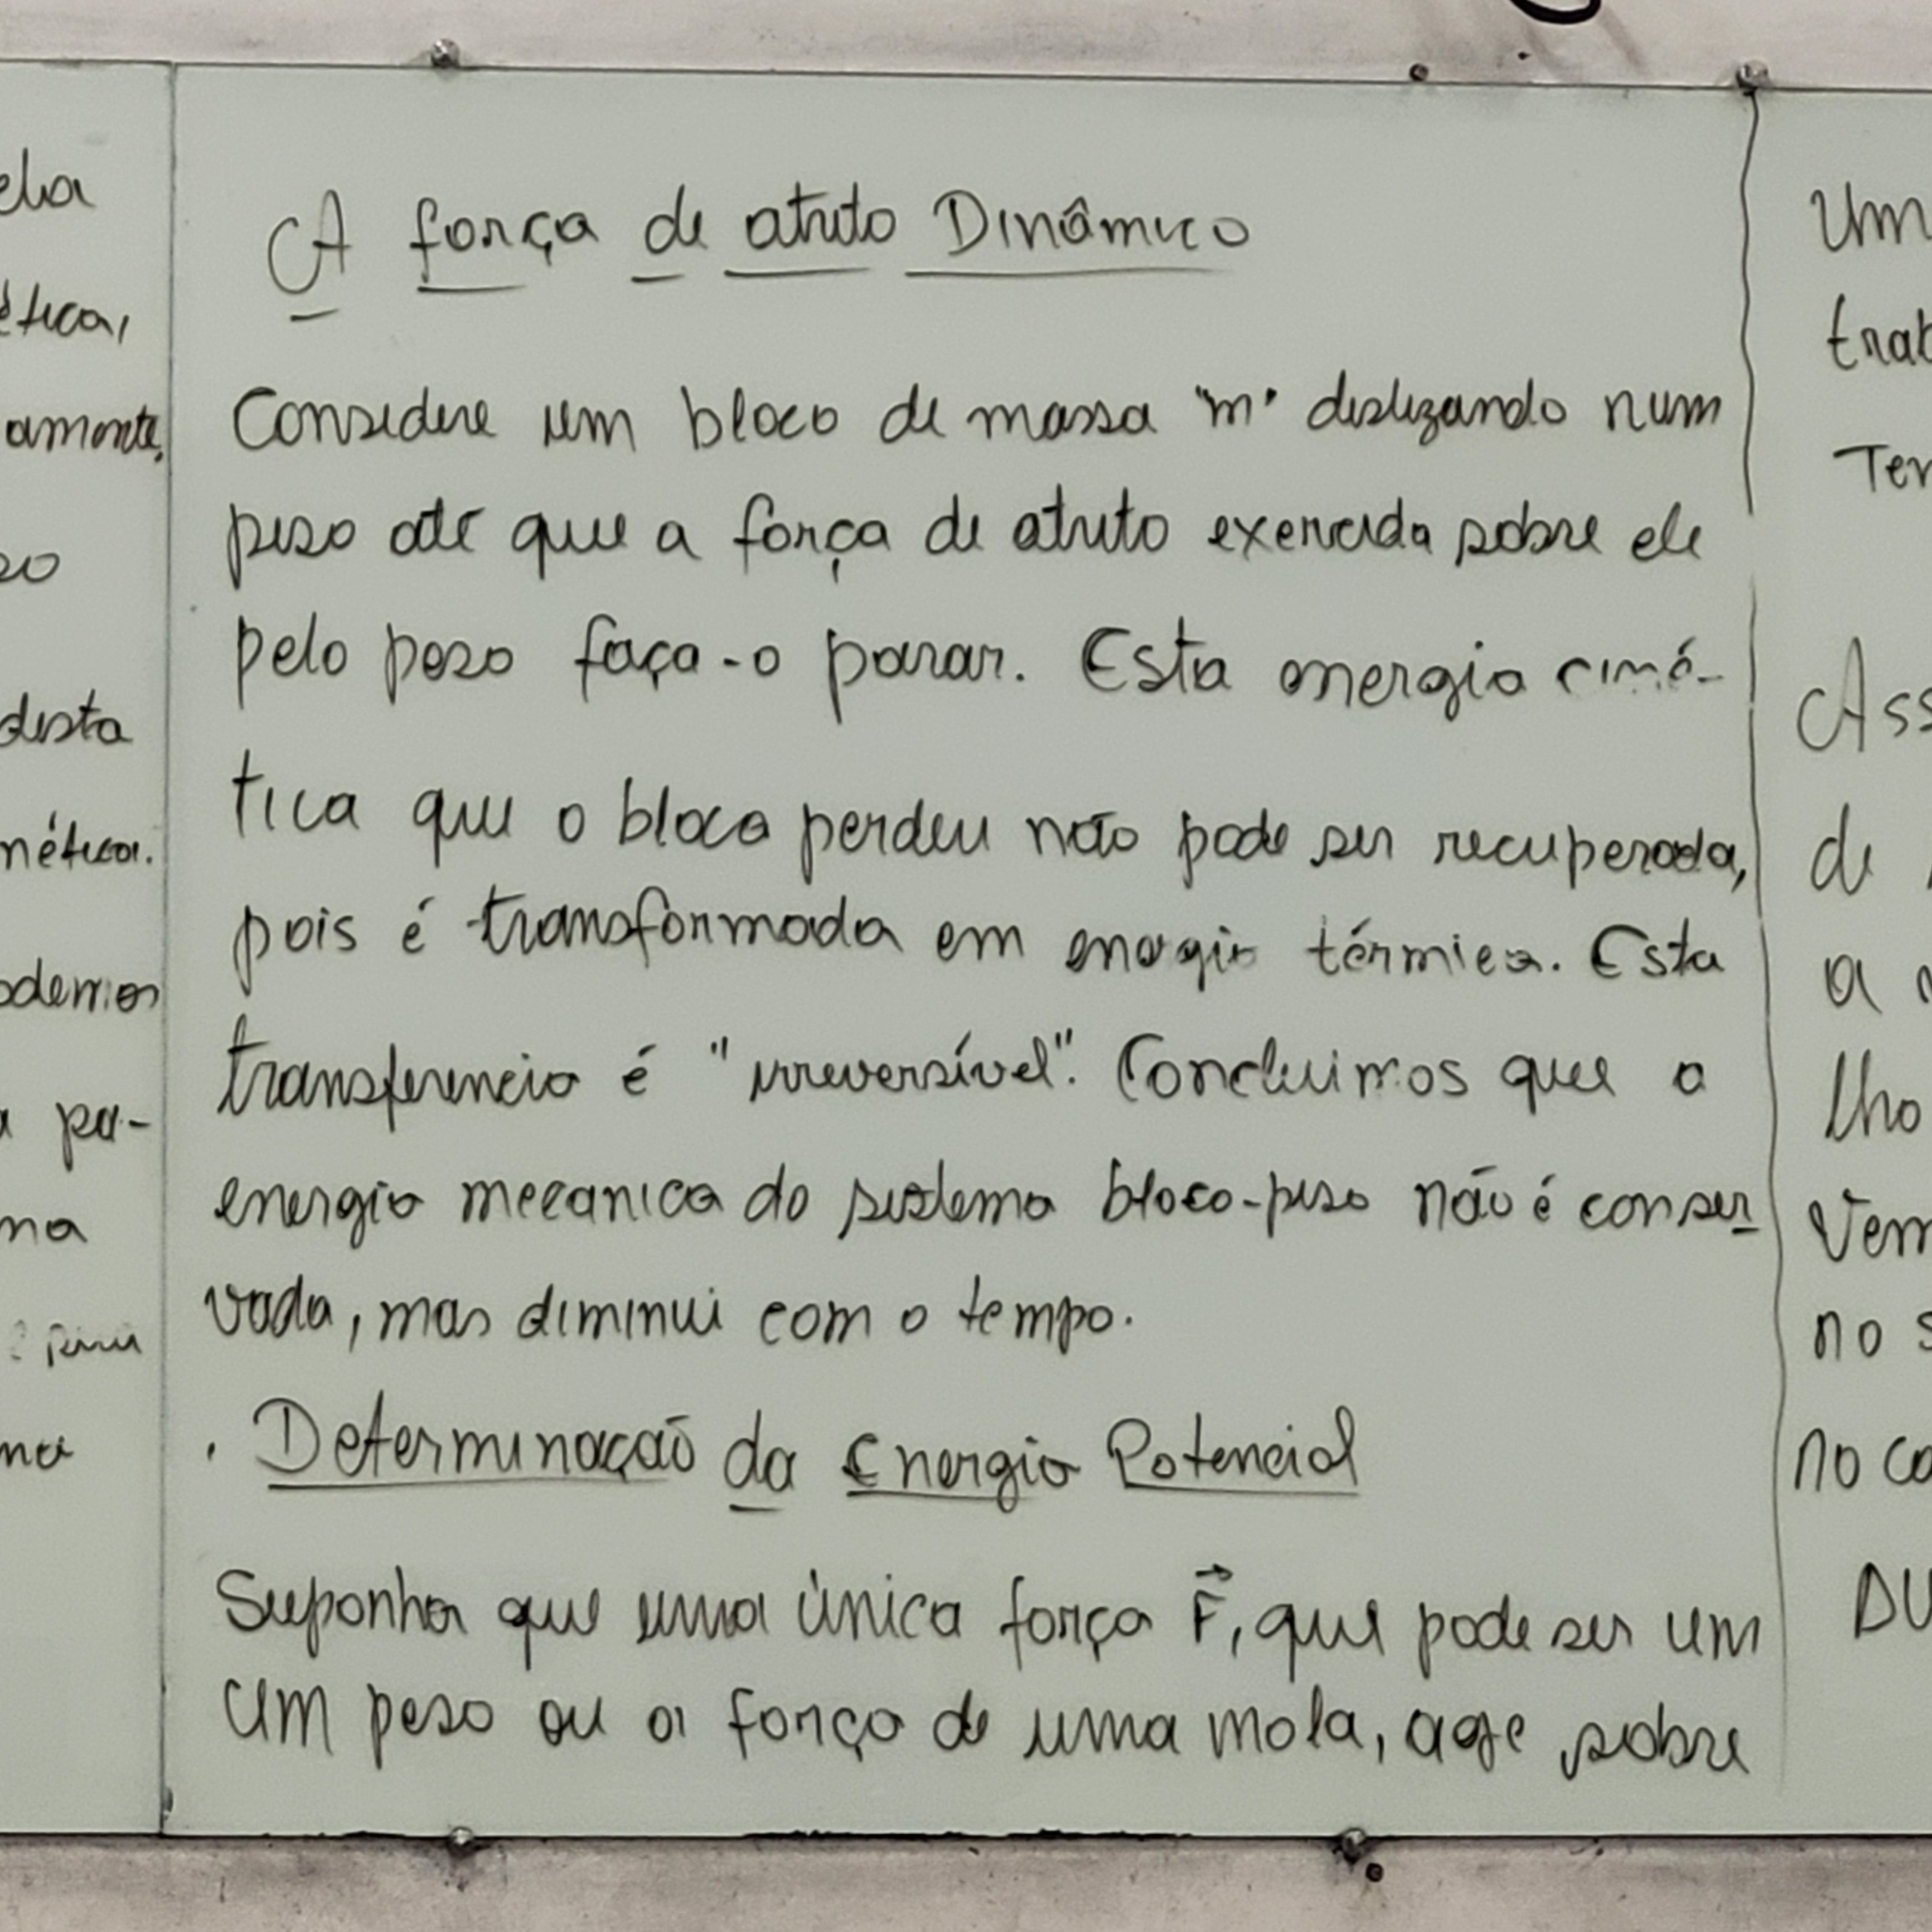 A força de atrito Dinâmico
Considere um bloco de massa "m" deslizando num
piso até que a força de atrito exercida sobre ele
pelo peso faça-o parar. Esta energia ciné-
tica que o bloco perdeu não pode ser recuperada,
pois é transformada em energia térmica. Esta
transferencia é "irreversível". Concluimos que a
energia mecanica do sistema bloco-piso não é conser-
vada, mas diminui com o tempo.
. Determinação da Energia Potencial
Suponha que uma única força F⃗, que pode ser um
um peso ou a força de uma mola, age sobre
ela
ética,
amente.
so
desta
nética.
odemos
a pa-
ma
ma
Um
trab
Ter
Ass
de
a
lho
Vem
no s
no co
DU